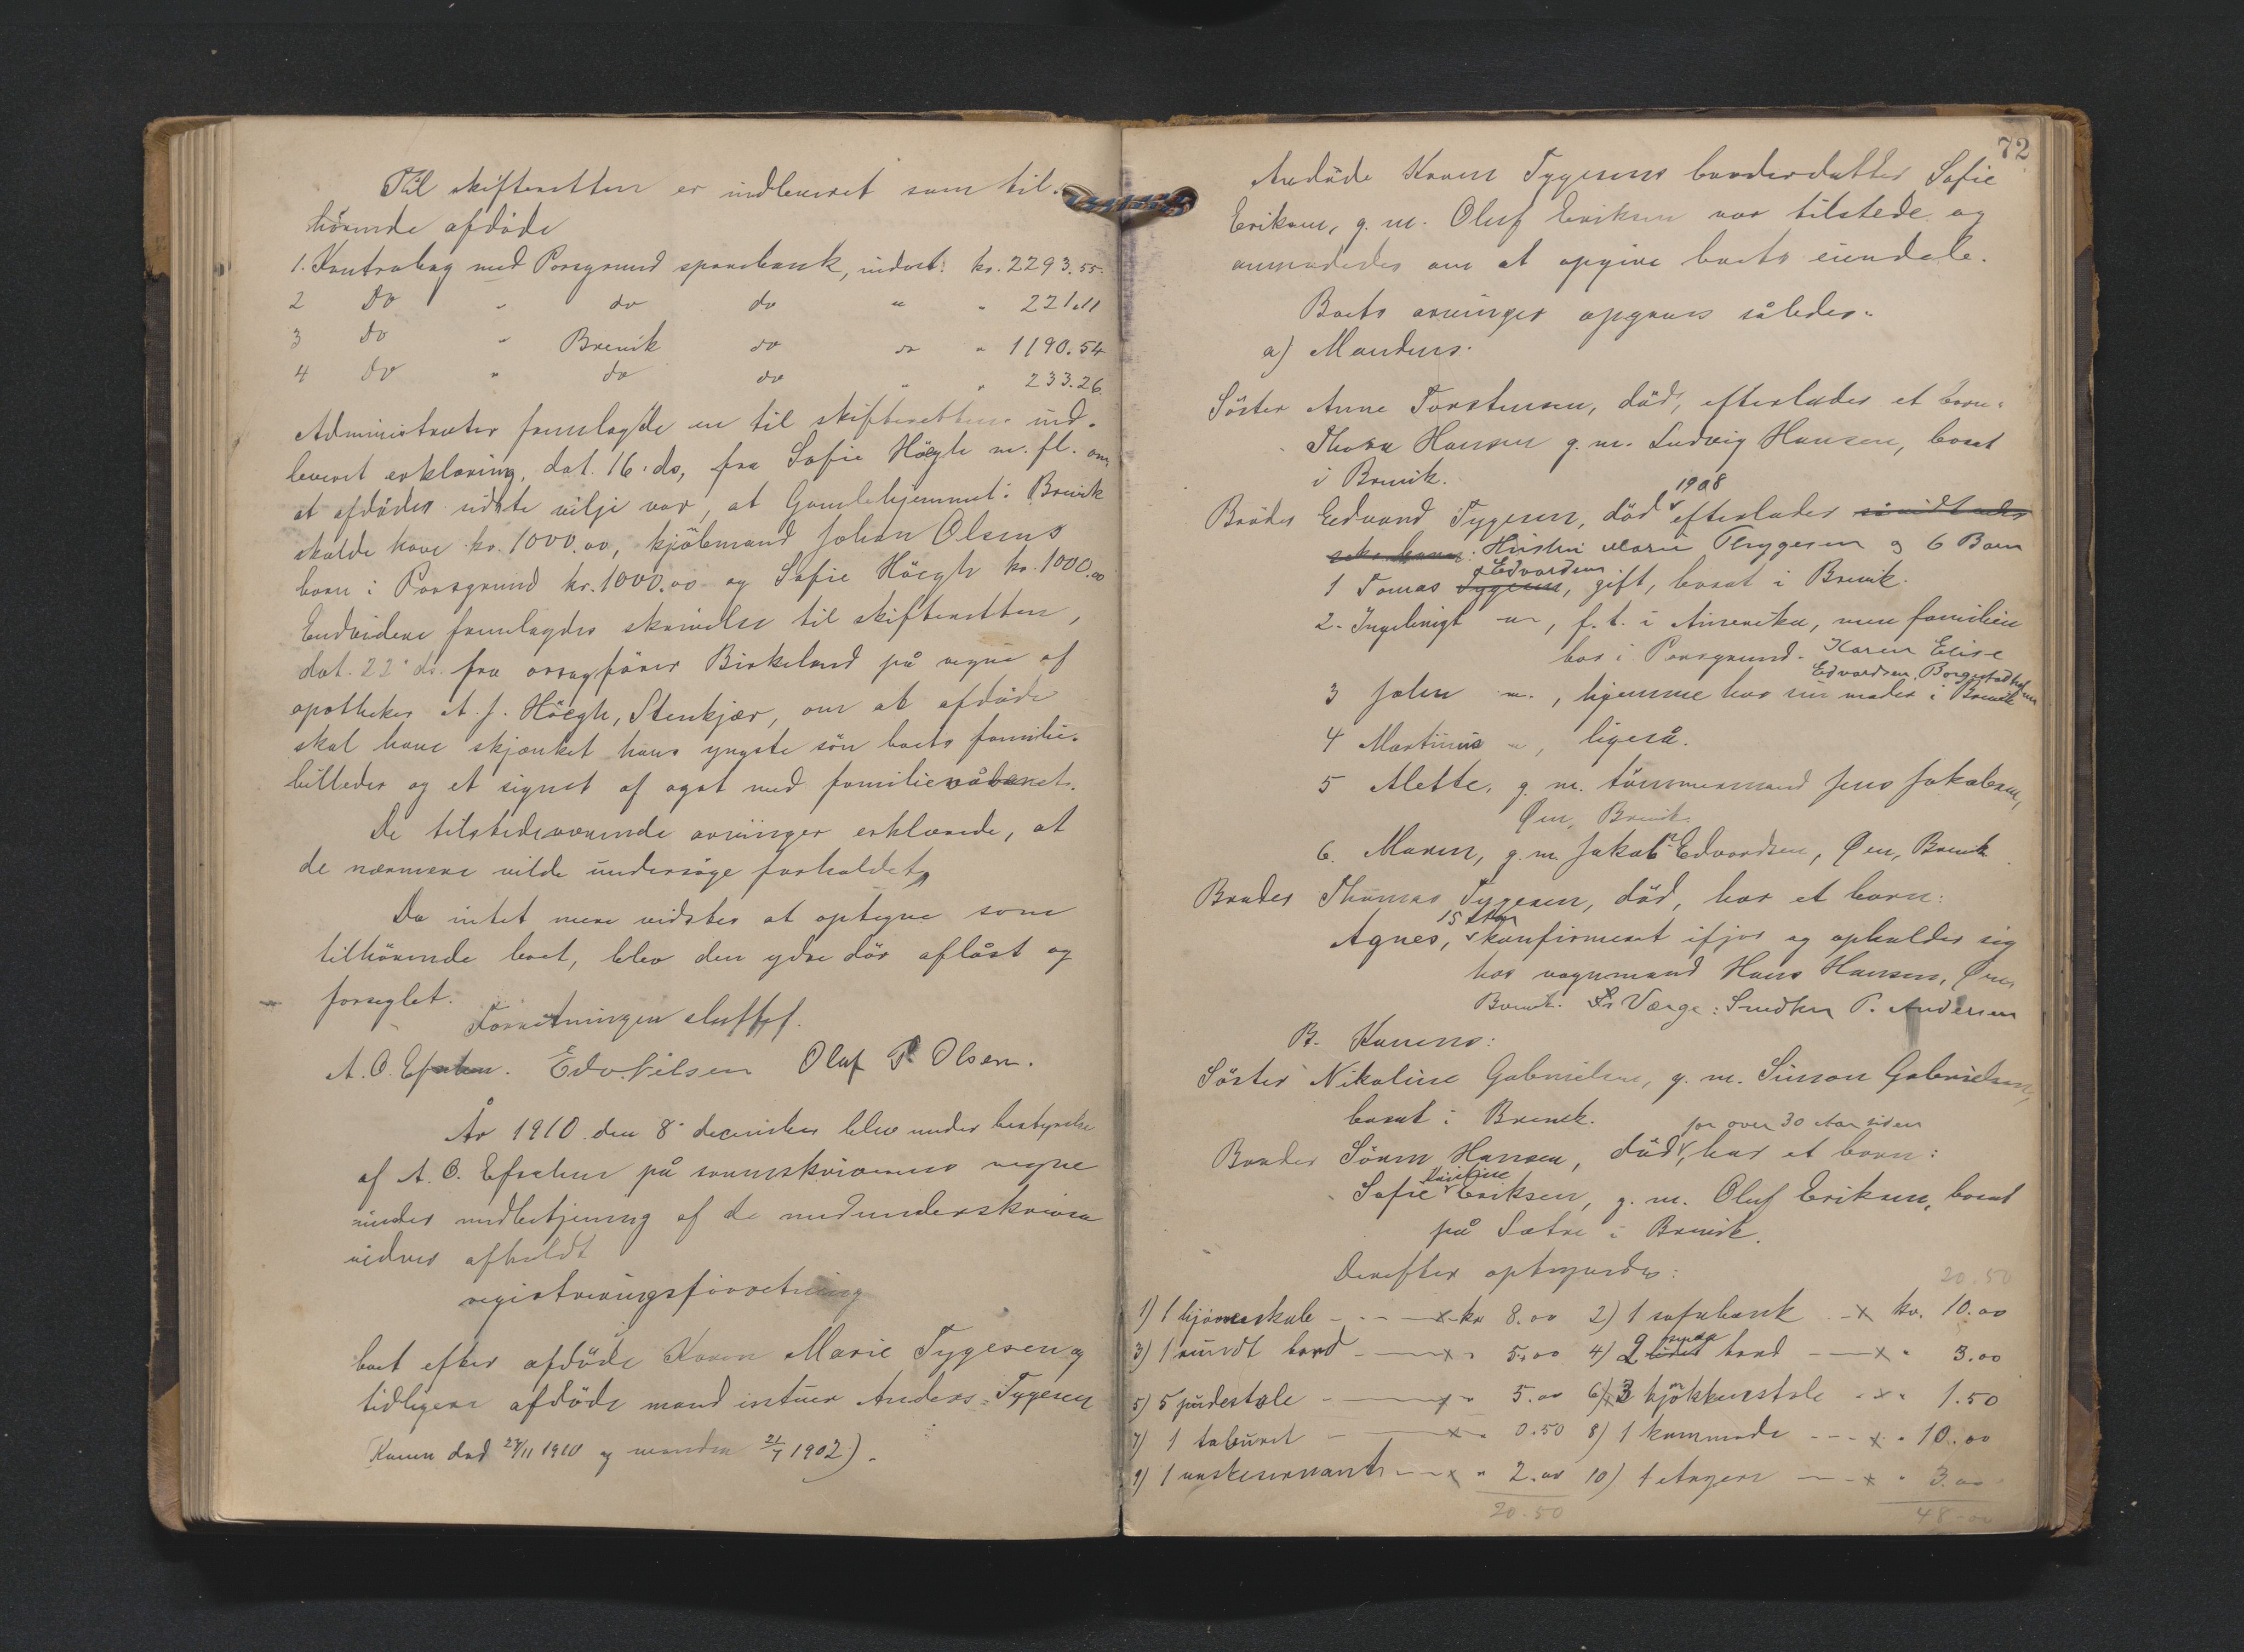 Til skifteretten er indleveret som til-
hörende afdöde
1. Kontrabog med Porsgrund sparebank, indest. kr. 2293.55.
2 Do " do do " " 221.11
3 Do " Brevik do do " 1190.54
4 Do " do do " " 233.26
Administrator fremlagde en til skifteretten ind-
leveret erklæring, dat. 16. ds, fra Sofie Höegh m. fl. om,
at afdödes sidste vilje var, at Gamlehjemmet i Brevik
skulde have kr. 1000.00, kjöbmand Johan Olsens
barn i Porsgrund kr. 1000.00 og Sofie Höegh kr. 1000.00
Endvidere fremlagdes skrivelse til skifteretten,
dat. 22' ds. fra overs fra sagförer Birkeland på vegne af
apotheker A. J. Höegh, Stenkjær, om at afdöde
skal have skjænket hans yngste sön boets familie-
billeder og et signet af agat med familievåbenet.
De tilstedeværende arvinger erklærede, at
de nærmere vilde undersöge forholdet.
Da intet mere vidstes at optegne som
tilhörende boet, blev den ydre dör aflåst og
forseglet.
Forretningen sluttet.
A. O. Edv. Nilsen Oluf P. Olsen.
År 1910 den 8' december blev under bestyrelse
af A. O. på sorenskriverens vegne
under medbetjening af de medunderskrevne
vidner afholdt
registreringsforretning
boet efter afdöde Karen Marie Tygesen og
tidligere afdöde mand Anders Tygesen
(Karen död 27/11 1910 og manden 21/7 1902).
72
Avdöde Karen Tygesens broderdatter Sofie
Eriksen, g. m. Oluf Eriksen var tilstede og
anmodedes om at opgive boets eiendele.
Boets arvinger opgaves således:
a) Mandens:
Söster Anne Torstensen, död, efterlader et barn:
Thora Hansen g. m. Ludvig Hansen, bosat
i Brevik.
1908
Broder Edvard Tygesen, död efterlader såvidt vides
seks barn: Hustru Marie Thygesen og 6 Barn
Edvardsen
1 Tomas Tygesen, gift, bosat i Brevik.
2. Ingebrigt —"—, f. t. i Amerika, men familien
bor i Porsgrund. Karen Elise
Edvardsen, Borgestadholmen
3 John —"—, hjemme hos sin moder i Brevik
4 Martinius —"—, ligeså.
5 Mette, g. m. tömmermand Jens Jakobsen,
Øen, Brevik.
6. Maren, g. m. Jakob Edvardsen, Øen, Brevik.
Broder Thomas Tygesen, död, har et barn:
15 Aar
Agnes, konfirmeret ifjor og opholder sig
hos vognmand Hans Hansen, Øen,
Brevik. Værge: Snedker P. Andersen
B. Karens:
Söster Nikoline Gabrielsen, g. m. Simon Gabrielsen,
bosat i Brevik.
for over 30 Aar siden
Broder Sören Hansen, död, har et barn:
Sofie Eriksen, g. m. Oluf Eriksen, bosat
på Sætre i Brevik.
Derefter optegnedes:
20.50
1) 1 hjörneskab — x kr 8.00 2) 1 sofabænk — x kr. 10.00
3) 1 rundt bord — x " 5.00 4) 2 smaa bord — x " 3.00
5) 5 pindestole — x " 5.00 6) 3 kjökkenstole — x " 1.50
7) 1 taburet — x " 0.50 8) 1 kommode — x " 10.00
9) 1 vaskeservant — x " 2.00 10) 1 etagere — x " 3.00
20.50 48.00